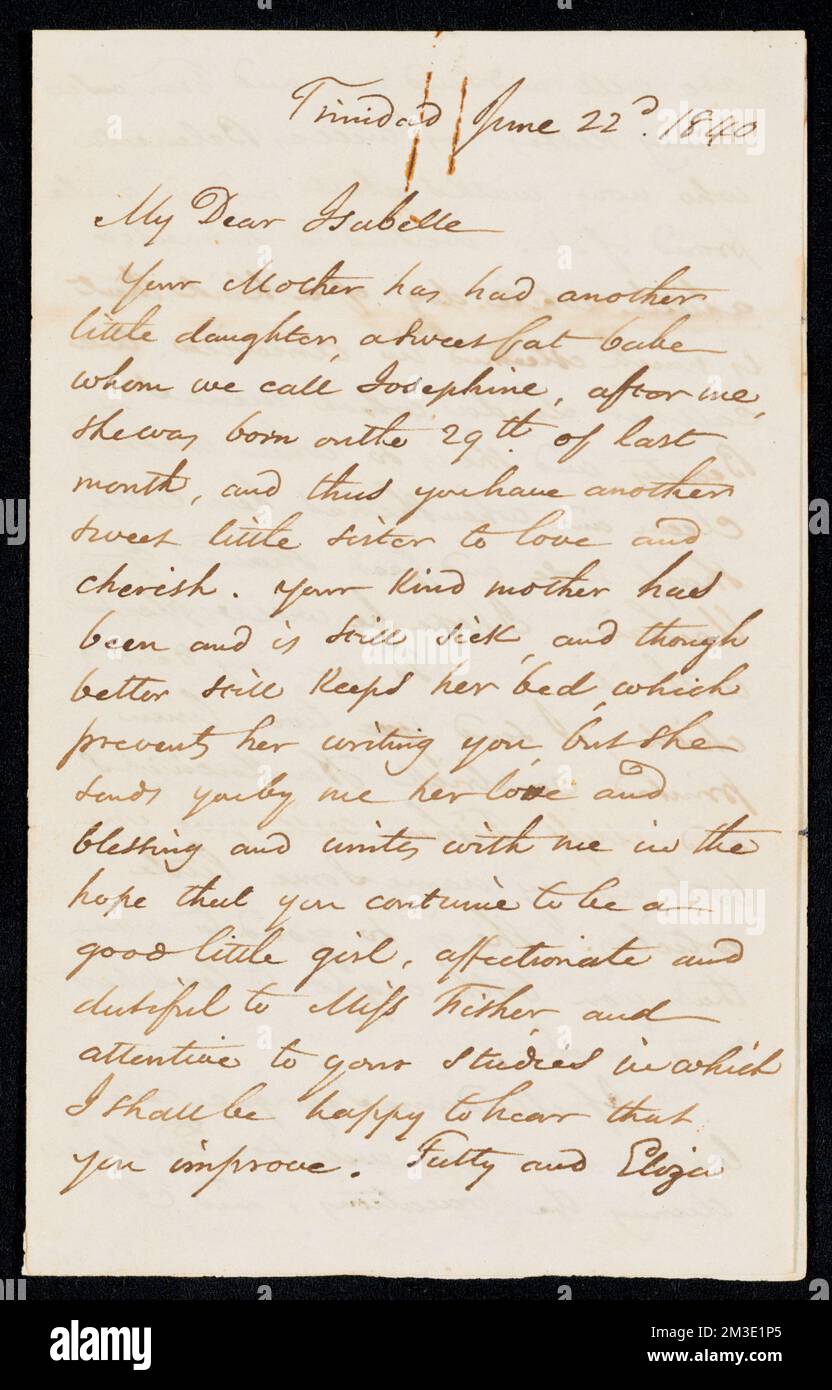 Trinidad June 22d. 1840
My Dear Isabelle
Your Mother has had another
little daughter, a sweet fat babe
whom we call Josephine, after me,
she was born on the 29th of last
month, and thus you have another
sweet little sister to love and
cherish. Your Kind mother has
been and is still sick, and though
better still Keeps her bed, which
prevents her writing you, but she
sends you by me her love and
blessing and unites with me in the
hope that you continue to be a
good little girl, affectionate and
dutiful to Miss Fisher, and
attentive to your studies in which
I shall be happy to hear that
you improve. Tutty and Eliza
alamy
Image ID: 2M3E1P5
www.alamy.com